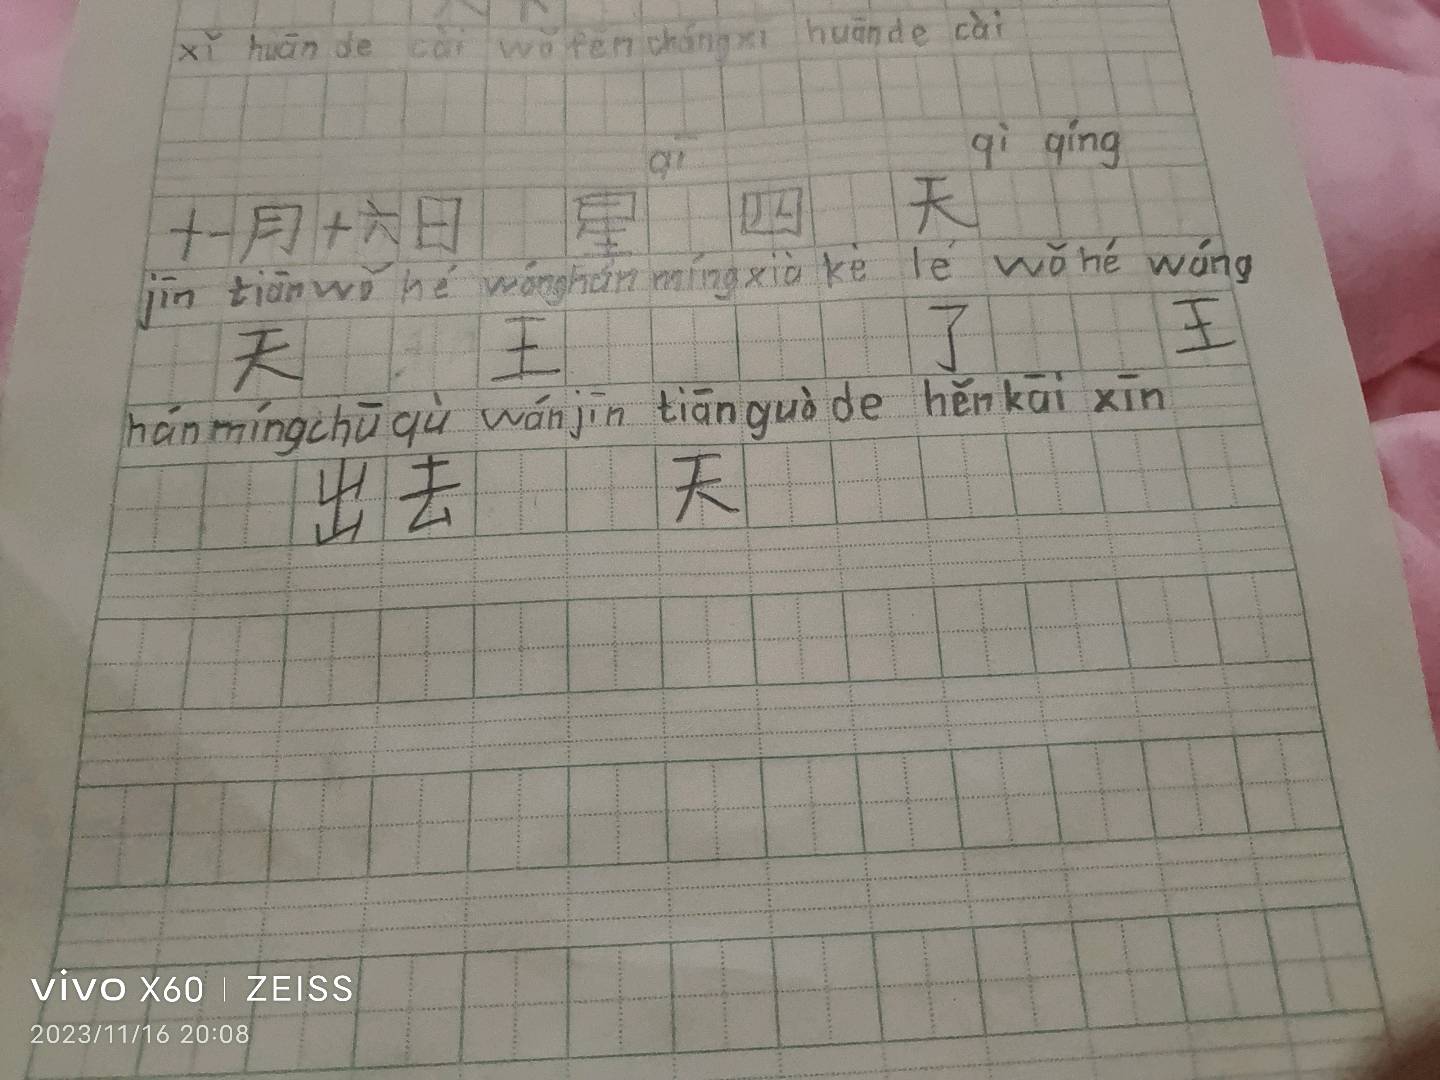 xǐ huān de cài wǒ fēn cháng xǐ huān de cài
qī qì qíng
十一月十六日 星 四 天
jīn tiān wǒ hé wáng hán míng xià kè lé wǒ hé wáng
天 王 了 王
hán míng chū qù wán jīn tiān guò de hěn kāi xīn
出去 天
vivo X60 | ZEISS
2023/11/16 20:08